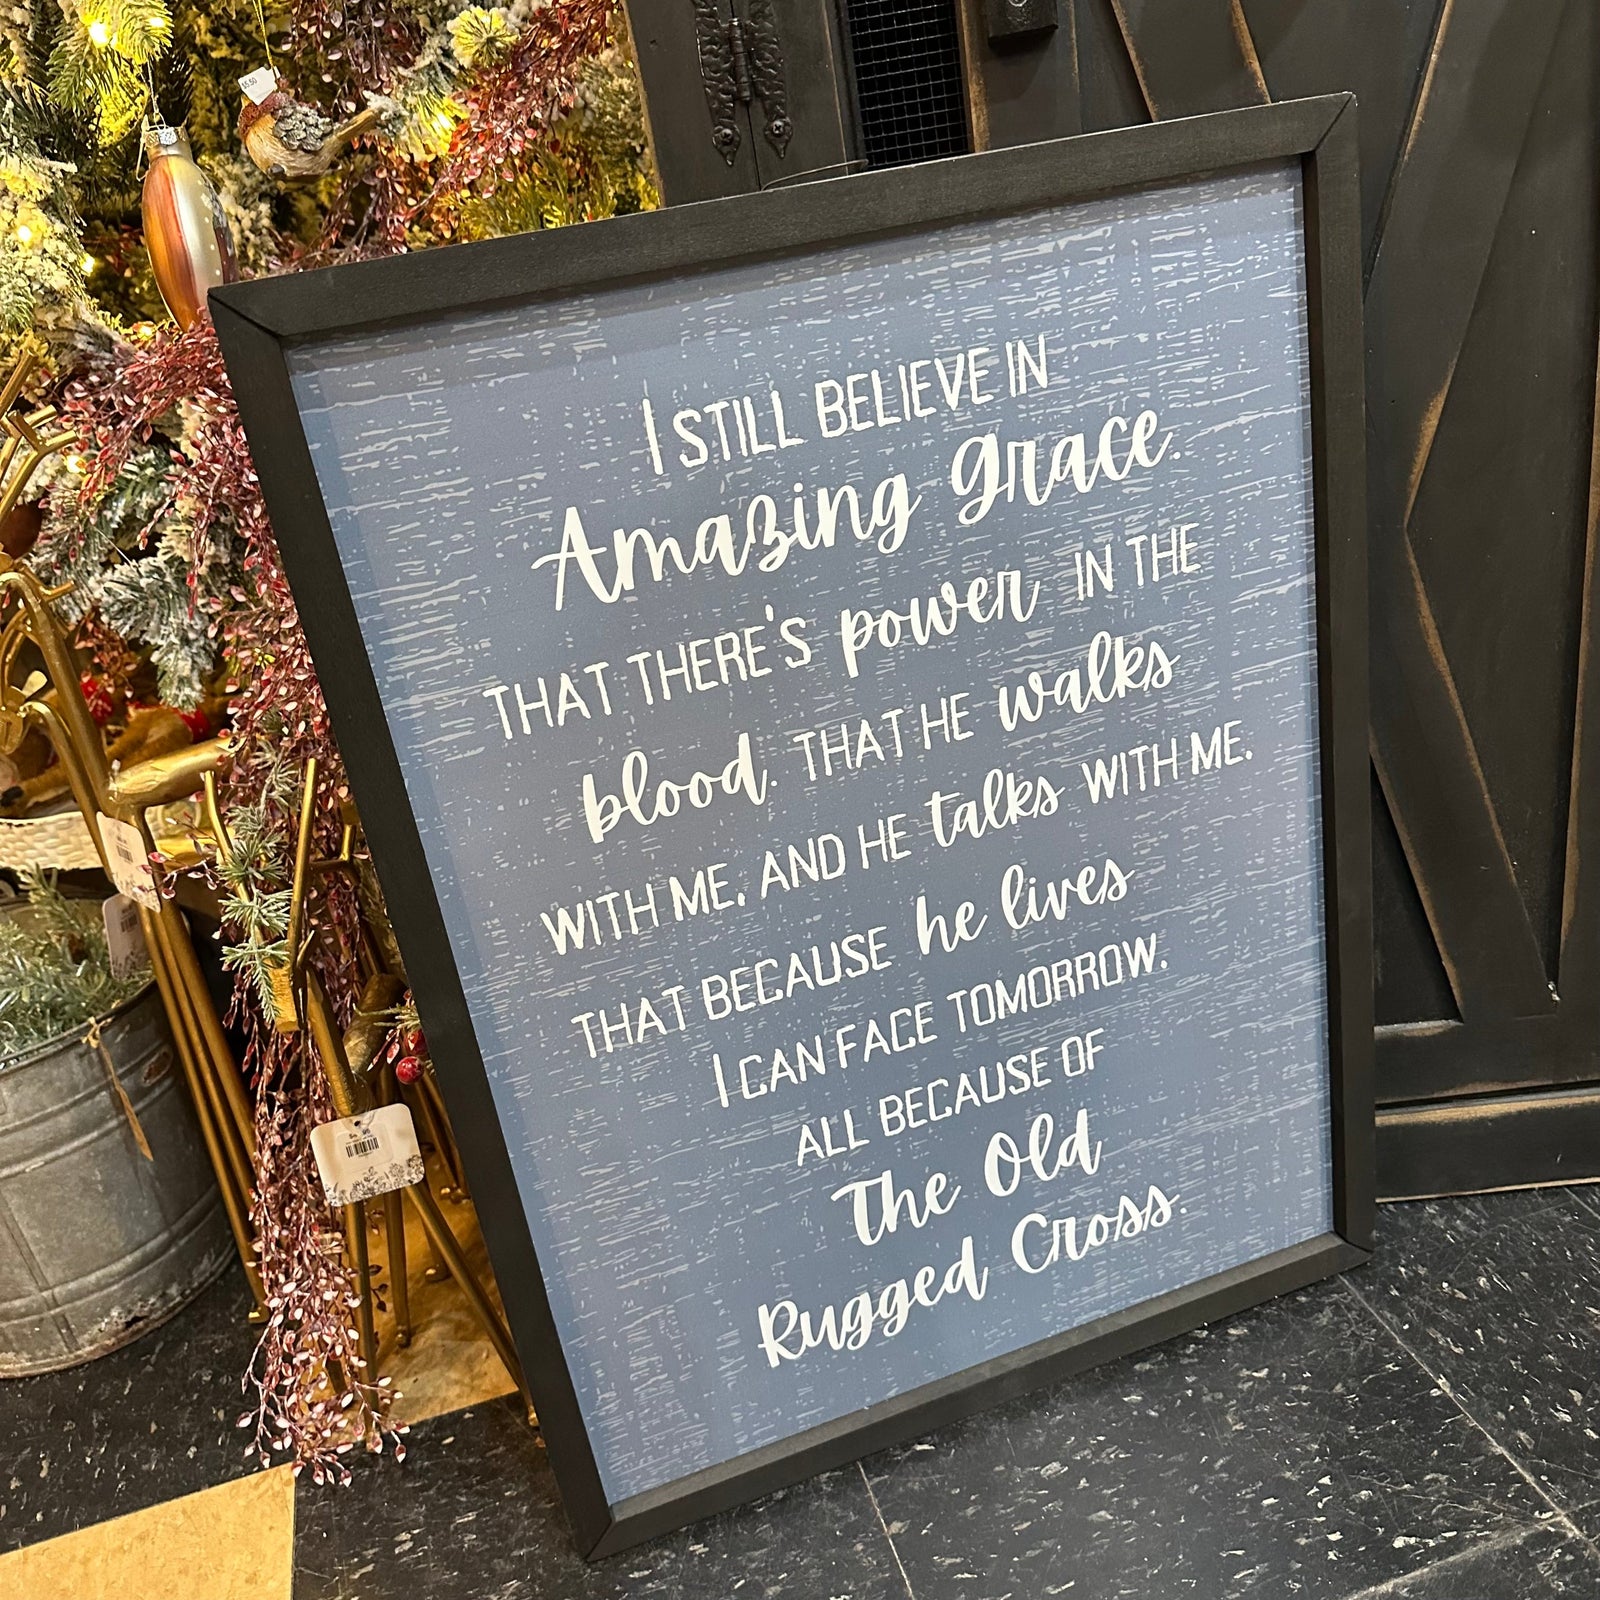 I STILL BELIEVE IN
Amazing Grace.
THAT THERE'S power IN THE
blood. THAT HE walks
WITH ME, AND HE talks WITH ME.
THAT BECAUSE he lives
I CAN FACE TOMORROW.
ALL BECAUSE OF
The Old
Rugged Cross.